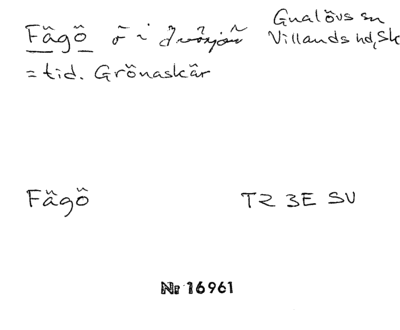 Fägö ö i Ivösjön Gualövs sn
Villands hd, Sk
= tid. Grönaskär
Fägö TR 3E SV
Nr 16961